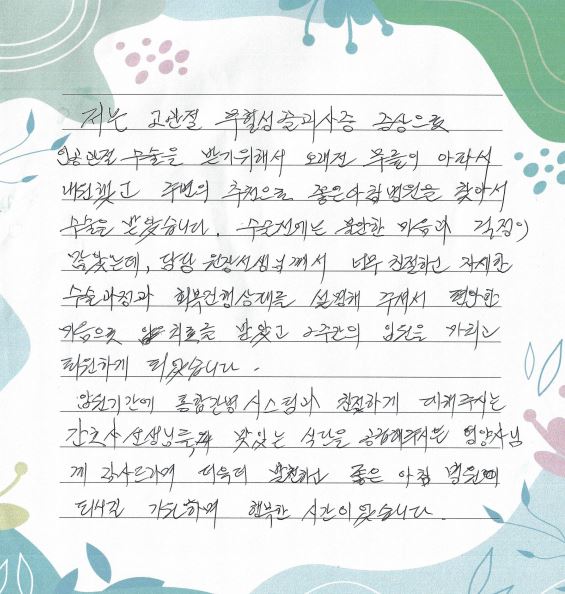 저는 고관절 무혈성골괴사증 증상으로
인공관절 수술을 받기위해서 오래전 무릎이 아파서
내원했고 주변의 추천으로 좋은아침병원을 찾아서
수술을 받았습니다. 수술전에는 불안한 마음과 걱정이
많았는데, 담당 원장선생님께서 너무 친절하고 자세한
수술과정과 회복진행상태를 설명해 주셔서 편안한
마음으로 치료를 받았고 2주간의 입원을 마치고
퇴원하게 되었습니다.
입원기간에 통합간병 시스템과 친절하게 대해주시는
간호사선생님들, 맛있는 식단을 공급해주시는 영양사님
께 감사드리며 더욱더 발전하고 좋은 아침 병원이
되시길 기원하며 행복한 시간이었습니다.